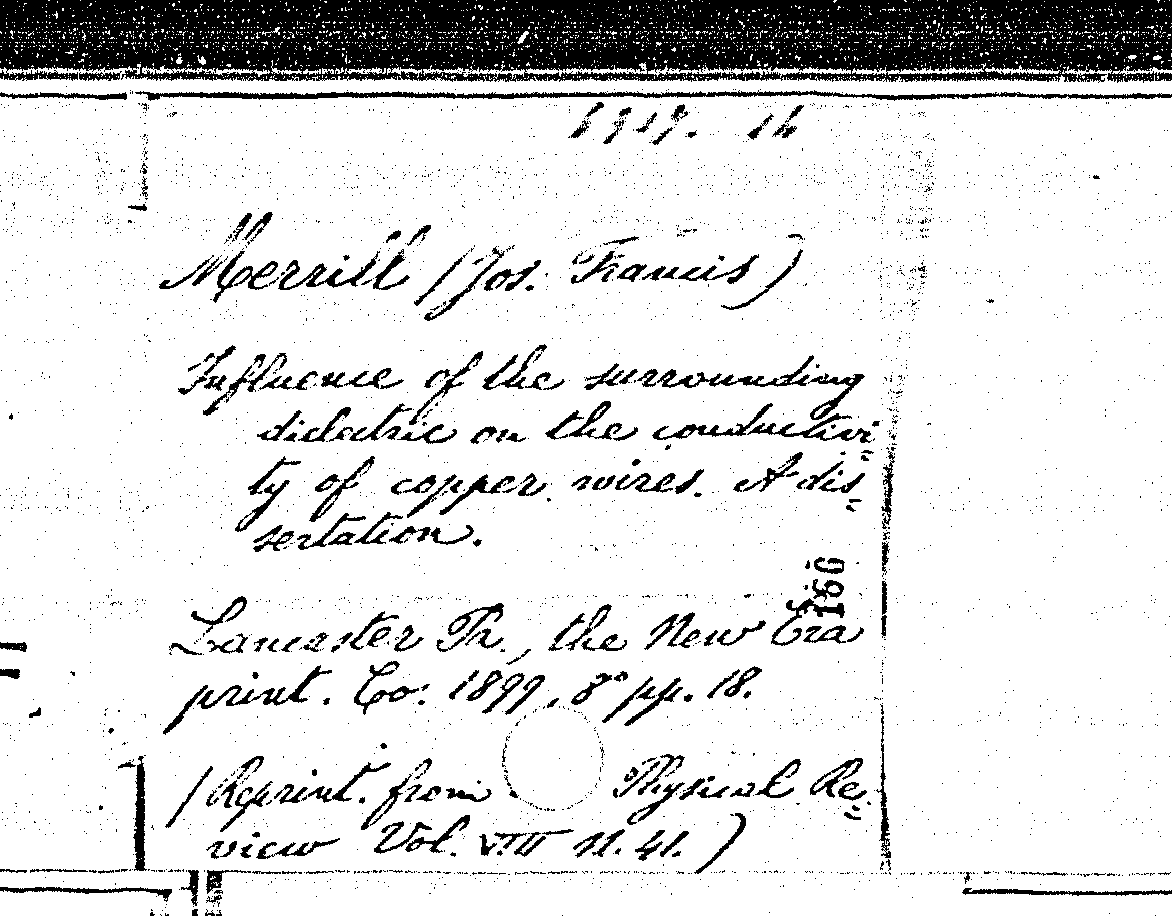 1917. 16
Merrill (Jos. Francis)
Influence of the surrounding
dielectric on the conductivi
ty of copper wires. A dis
sertation.
160
Lancaster Pa., the New Era
print. Co: 1899. 8° pp. 18.
(Reprint. from Physical Re
view Vol. VIII N. 41.)